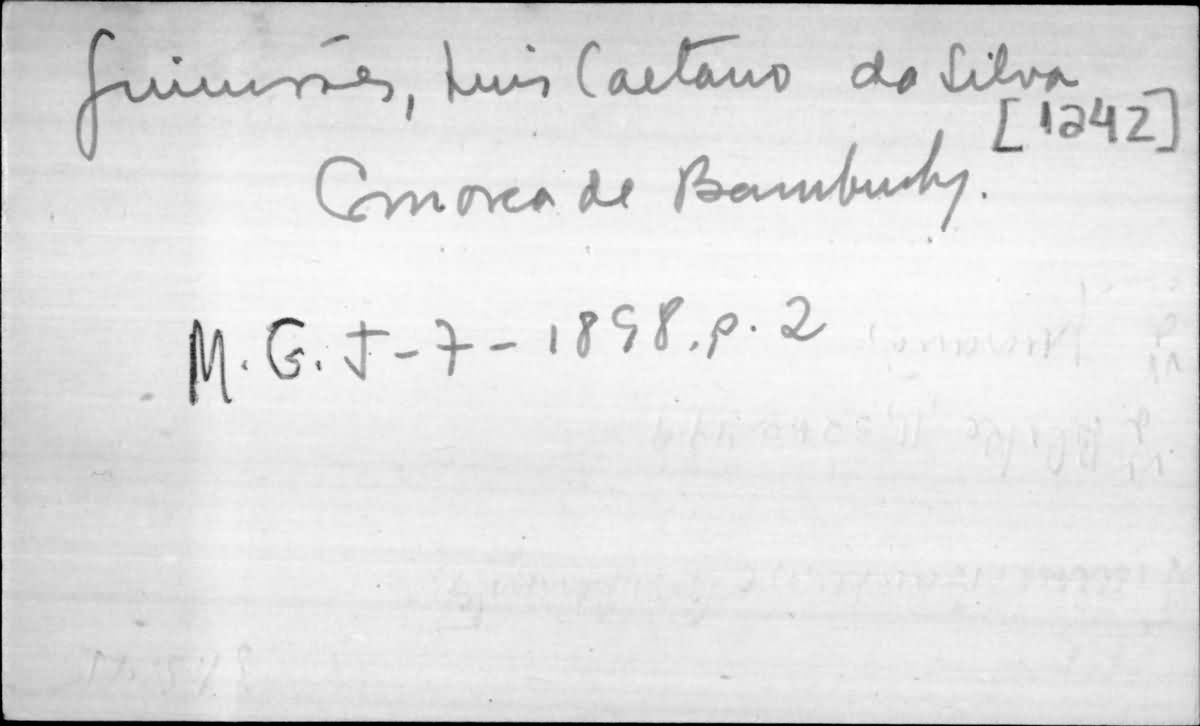 Guimarães, Luis Caetano da Silva
[1242]
Comarca de Bambuhy.
M. G. J - 7 - 1898. p. 2